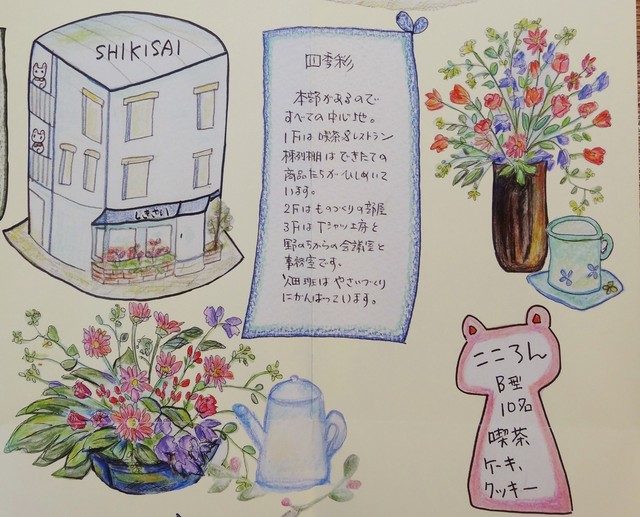 SHIKISAI
しきさい
四季彩
本部があるので
すべての中心地。
1Fは喫茶&レストラン
陳列棚はできたての
商品たちがひしめいて
います。
2Fはものづくりの部屋
3FはTシャツ工房と
野のちからの会議室と
事務室です。
畑班はやさいづくり
にがんばっています。
こころん
B型
10名
喫茶
ケーキ、
クッキー